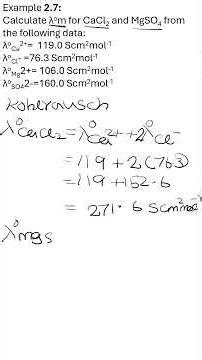 Example 2.7:
Calculate λºm for CaCl₂ and MgSO₄ from
the following data:
λº Ca²⁺= 119.0 Scm²mol⁻¹
λº Cl⁻ =76.3 Scm²mol⁻¹
λº Mg2+= 106.0 Scm²mol⁻¹
λº SO4 2-=160.0 Scm²mol⁻¹
Kohlrausch
λ° CaCl2 = λ° Ca2+ + 2λ° Cl-
= 119 + 2(76.3)
= 119 + 152.6
= 271.6 Scm²mol⁻¹
λ° mgs